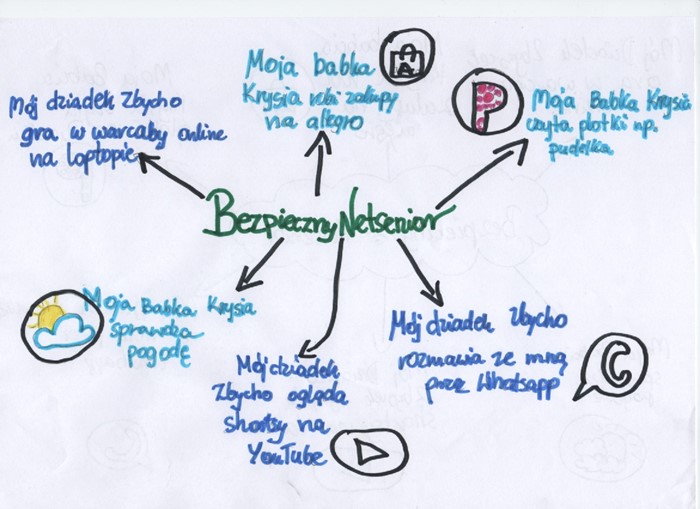 Moja babka
Krysia robi zakupy
na allegro
Mój dziadek Zbycho
gra w warcaby online
na loptopie
Moja Babka Krysia
czyta plotki np.
pudelka
Bezpieczny Netsenior
Moja Babka Krysia
sprawdza
pogodę
Mój dziadek
Zbycho ogląda
shortsy na
YouTube
Mój dziadek Zbycho
rozmawia ze mną
przez Whatsapp